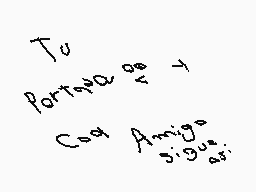 Tu
Portada es
Cool Amigo
sigue asi